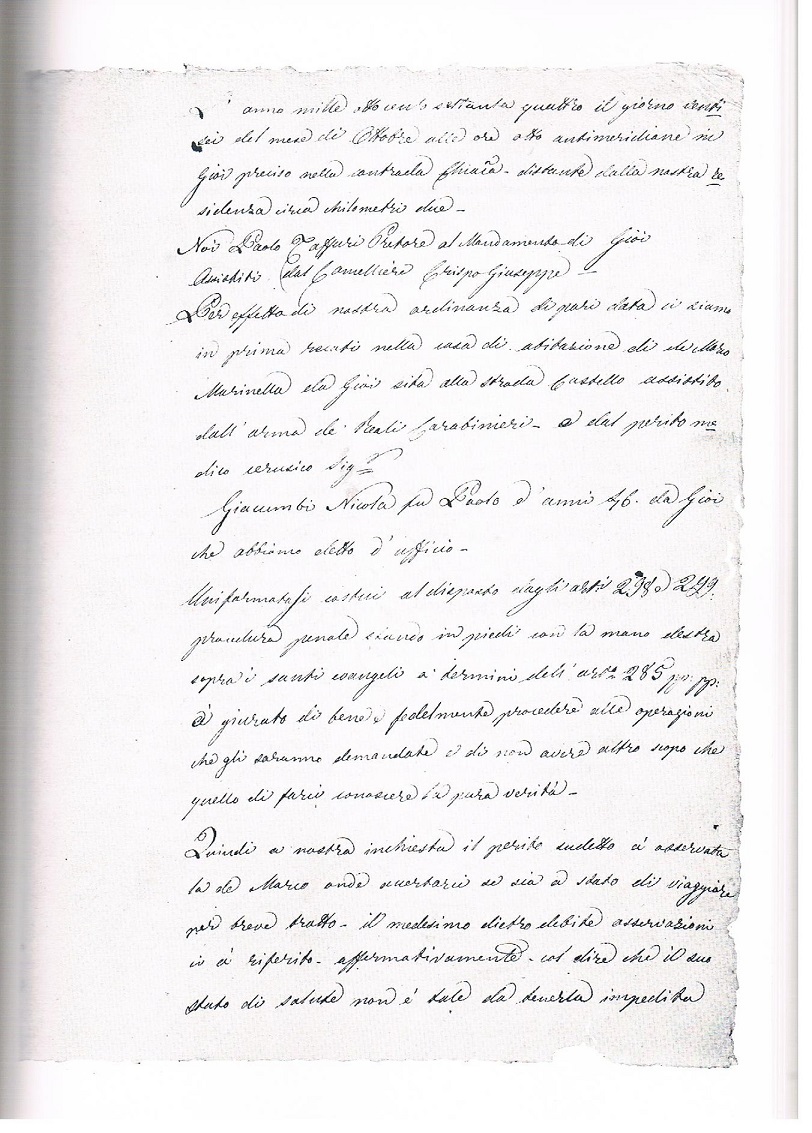 L' anno mille ottocento settanta quattro il giorno venti
sei del mese di Ottobre alle ore otto antimeridiane in
Gioi preciso nella contrada Chiaia - distante dalla nostra re
sidenza circa chilometri due -
Noi Paolo Taffuri Pretore al Mandamento di Gioi
Assistiti dal Cancelliere Crispo Giuseppe -
Per effetto di nostra ordinanza di pari data ci siamo
in prima recati nella casa di abitazione di de Marco
Marinella da Gioi sita alla strada Castello assistito
dall' arma de' Reali Carabinieri - e dal perito me
dico cerusico Sigr
Giacumbi Nicola fu Paolo d' anni 46. da Gioi
che abbiamo eletto d' ufficio -
Uniformatosi costui al disposto dagli arti 298 e 299.
procedura penale stando in piedi con la mano destra
sopra i santi evangeli a' termini dell' arto 285 pp: pp:
à giurato di bene e fedelmente procedere alle operazioni
che gli saranno demandate e di non avere altro scopo che
quello di farci conoscere la pura verità -
Quindi a nostra inchiesta il perito sudetto à osservata
la de Marco onde accertarci se sia a stato di viaggiare
per breve tratto - il medesimo dietro debite osservazioni
ci à riferito - affermativamente - col dire che il suo
stato di salute non é tale da tenerla impedita